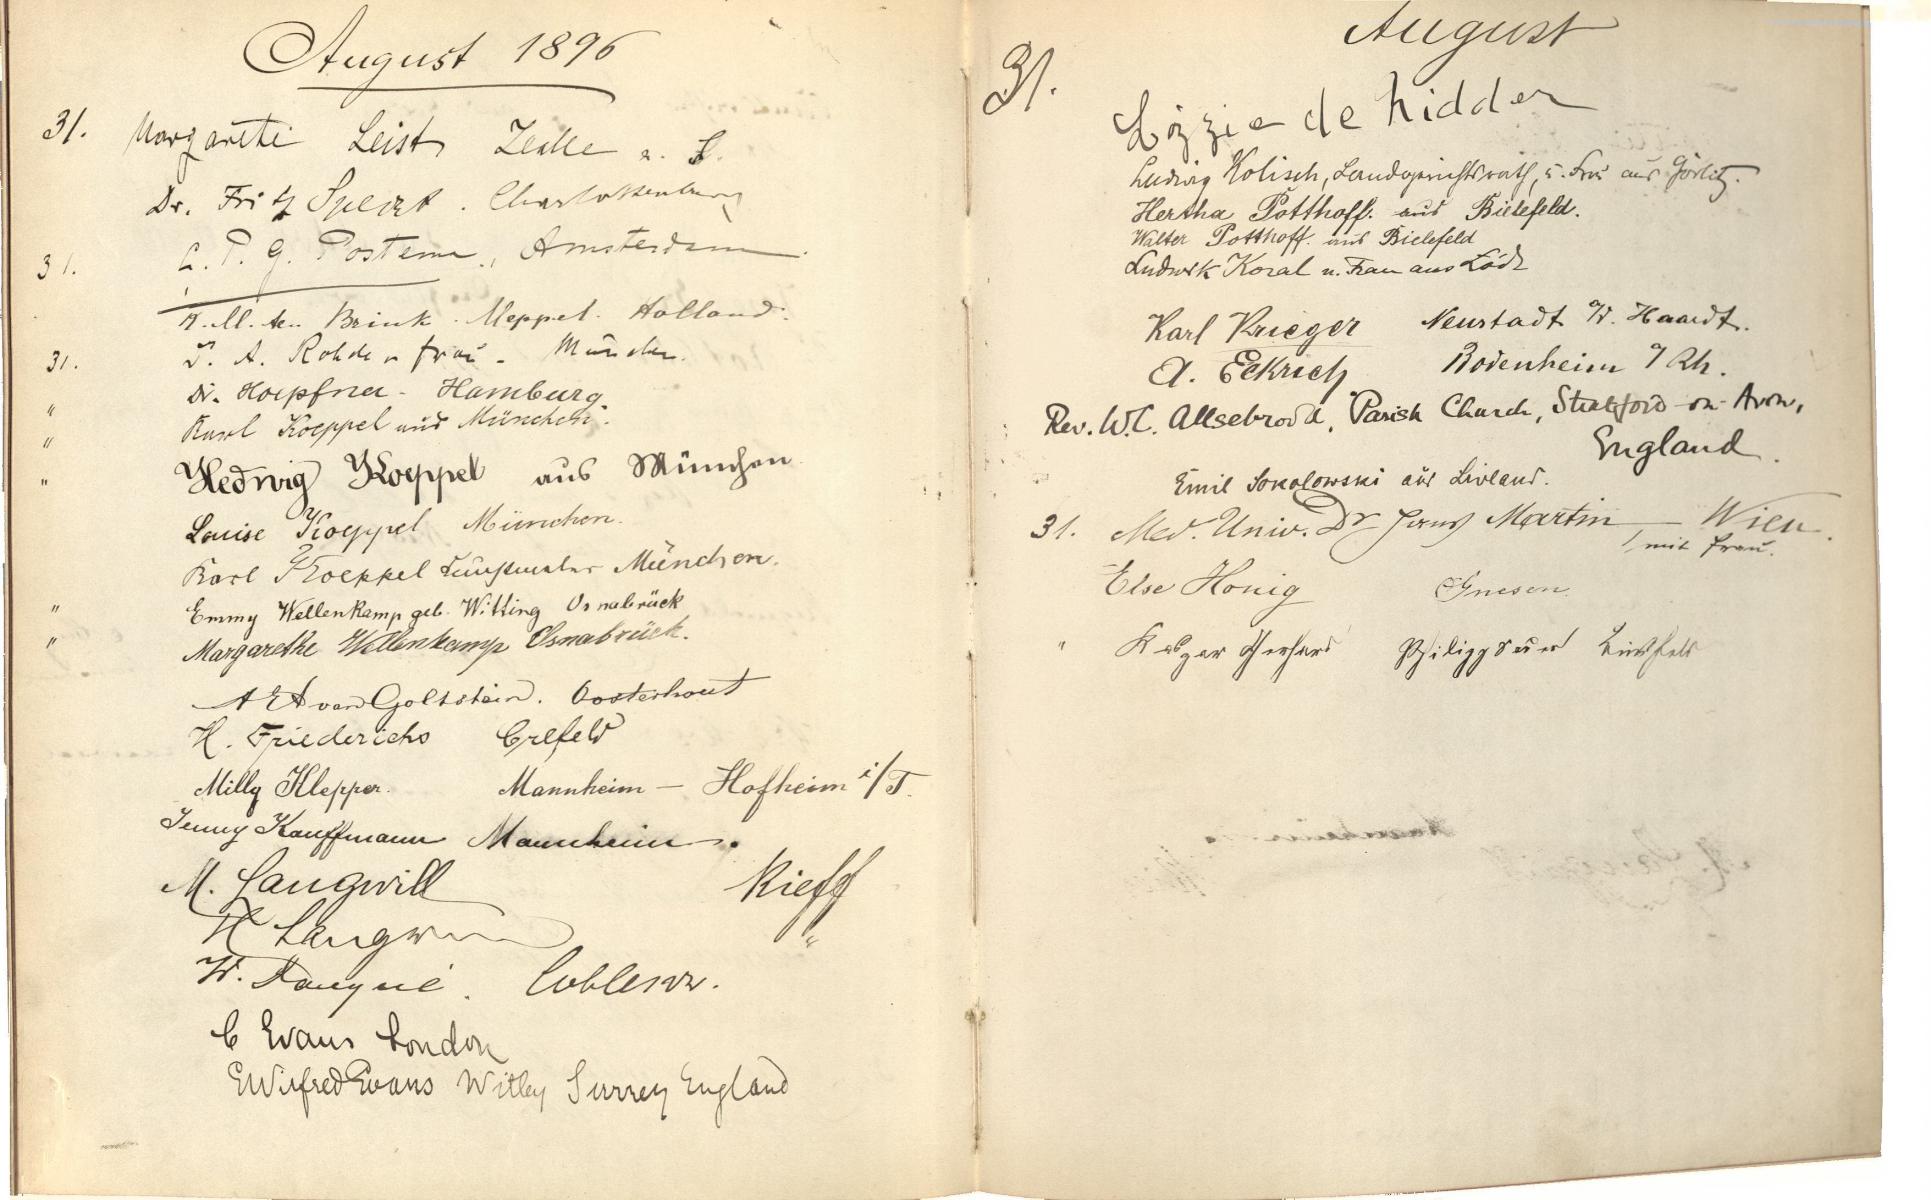 August 1896
31. Margarethe Leist Zedle a. S.
Dr. Fritz Speyer. Charlottenburg
31. C. P. G. Postema, Amsterdam.
K. M. ten Brink. Meppel. Holland.
31. A. Rohde u frau - München.
" Dr. Hoepfner - Hamburg
" Karl Koeppel aus München.
" Hedwig Koeppel aus München
Louise Koeppel München.
Karl Koeppel Kunstmaler München.
" Emmy Wellenkamp geb. Witting Osnabrück
" Margarethe Wellenkamp Osnabrück.
van Goltstein. Oosterhout
H. Friederichs Crefeld
Milly Klepper. Mannheim - Hofheim i/T.
Jenny Kauffmann Mannheim.
M. Langwill Kieff
H Langwill "
W. Coblenz.
C Evans London
E Wilfred Evans Witley Surrey England
August
31.
Lizzie de Ridder
Ludwig Kolisch, Landgerichtsrath, u. Frau aus Görlitz.
Hertha Potthoff. aus Bielefeld.
Walter Potthoff. aus Bielefeld
Ludwik Koral u. Frau aus Łódź
Karl Krieger Neustadt a/d. Haardt.
A. Eckrich Bodenheim a/Rh.
Rev. W. C. Allsebrook, Parish Church, Stratford-on-Avon,
England.
Emil Sokolowski aus Livland.
31. Med. Univ. Dr Martin - Wien.
mit frau.
Else Honig Gnesen.
"